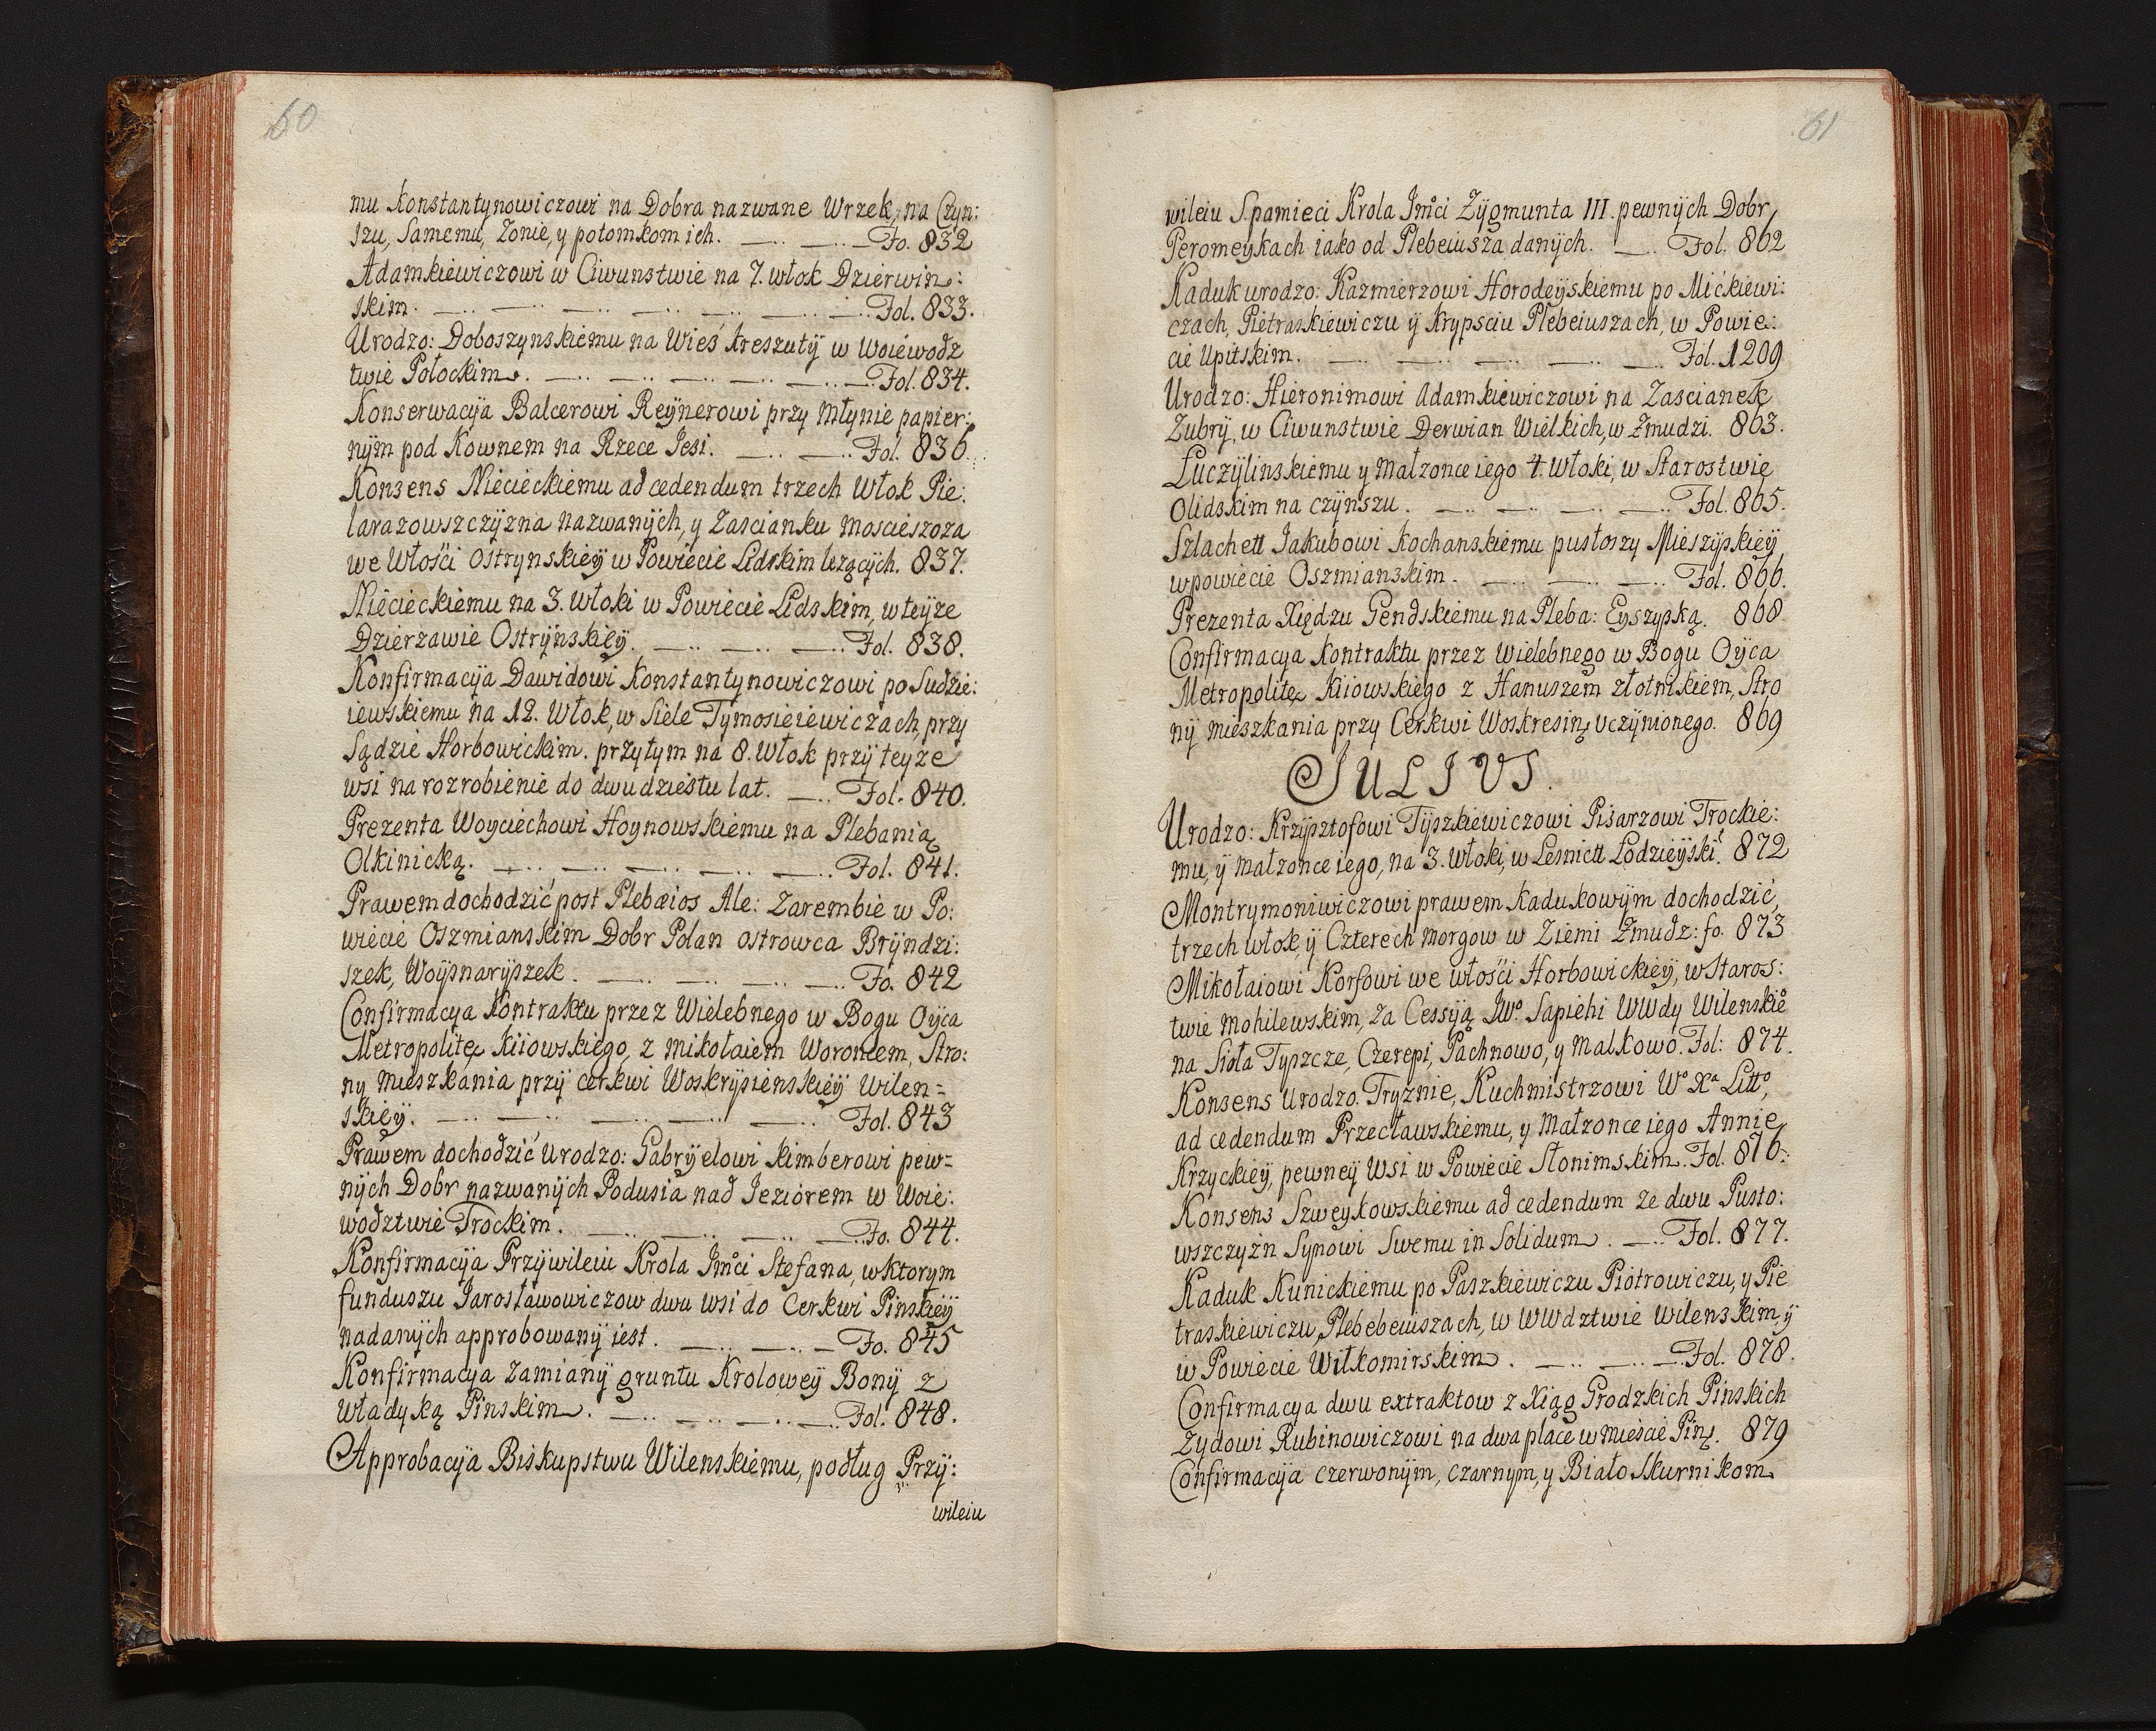 60
mu Konstantynowiczowi na Dobra nazwane Wrzek, na Czyn:
szu, Samemu, Zonie, y potomkom ich. Fo. 832
Adamkiewiczowi w Ciwunstwie na 7. włok Dzierwin:
skim. Fol. 833.
Urodzo: Doboszynskiemu na Wieś Kreszuty w Woiewodz
twie Połockim. Fol. 834.
Konserwacyia Balcerowi Reÿnerowi przy Młynie papier:
nÿm pod Kownem na Rzece Jesi. Fol. 836.
Konsens Niecieckiemu ad cedendum trzech Włok Pie:
larazowszczÿzna nazwanÿch, y Zascianku Moscieszoza
we Włości Ostrynskieÿ w Powiecie Lidskim lezącÿch. 837.
Niecieckiemu na 3. Włoki w Powiecie Lidskim, w teÿze
Dzierzawie Ostrÿnskieÿ. Fol. 838.
Konfirmacÿia Dawidowi Konstantynowiczowi po Sudzie:
iewskiemu na 12. Włok, w Siele Tymosieiewiczach, przy
Sądzie Horbowickim. przytym na 8. Włok przÿ teyze
wsi na rozrobienie do dwudziestu lat. Fol. 840.
Prezenta Woyciechowi Hoynowskiemu na Plebanią
Olkinicką. Fol. 841.
Prawem dochodzić post Plebæios Ale: Zarembie w Po:
wiecie Oszmianskim Dobr Polan Ostrowca Brÿndzi:
szek, Woÿsnarÿszek. Fo. 842
Confirmacya Kontraktu przez Wielebnego w Bogu Oÿca
Metropolitę Kiiowskiego, z Mikołaiem Woroniem, Stro:
ny mieszkania przÿ cerkwi Woskrÿsienskieÿ Wilen=
skieÿ. Fol. 843
Prawem dochodzić Urodzo: Gabrÿelowi Kimberowi pew=
nÿch Dobr nazwanÿch Podusia nad Jeziorem w Woie:
wodztwie Trockim. Fo. 844.
Konfirmacÿa Przÿwileiu Krola Jm̊ci Stefana, w ktorym
funduszu Jarosławowiczow dwu wsi do Cerkwi Pinskieÿ
nadanÿch approbowanÿ iest. Fo. 845
Konfirmacya Zamianÿ gruntu Krolowey Bonÿ z
Władyką Pinskim. Fol. 848.
Approbacÿa Biskupstwu Wilenskiemu, podług Przÿ:
wileiu
61
wileiu S. pamieci Krola Jm̊ci Zÿgmunta III. pewnÿch Dobr
Peromeykach iako od Plebeiusza danÿch. Fol. 862
Kaduk urodzo: Kazmierzowi Horodeÿskiemu po Mićkiewi:
czach, Pietraskiewiczu ÿ Krypsciu Plebeiuszach, w Powie:
cie Upitskim. Fol. 1209
Urodzo: Hieronimowi Adamkiewiczowi na Zascianek
Zubrÿ, w Ciwunstwie Derwian Wielkich, w Zmudzi. 863.
Łuczÿlinskiemu y małzonce iego 4. Włoki, w Starostwie
Olidskim na czÿnszu. Fol. 865.
Szlachett Jakubowi Kochanskiemu pustoszy Mieszyskieÿ
w powiecie Oszmianskim. Fol. 866.
Prezenta Xiędzu Gendskiemu na Pleba: Eyszyską. 868
Confirmacya Kontraktu przez Wielebnego w Bogu Oÿca
Metropolitę Kiiowskiego z Hanuszem złotnikiem, Stro
nÿ mieszkania przy Cerkwi Woskresinę Uczÿnionego. 869
JULIVS.
Urodzo: Krzysztofowi Tÿszkiewiczowi Pisarzowi Trockie:
mu, ÿ małzonce iego, na 3. Włoki, w Lesnictt Łodzieÿski̊. 872
Montrymoniwiczowi prawem Kadukowÿm dochodzić,
trzech włok, ÿ Czterech morgow w Ziemi Zmudz: fo. 873
Mikołaiowi Korfowi we włości Horbowickieÿ, w Staros:
twie Mohilewskim, za Cessÿą JWo. Sapiehi WWdy Wilenskie̊
na Sioła Tyszcze, Czerepi, Pachnowo, y Małkowo. Fol: 874.
Konsens Urodzo. Tryznie, Kuchmistrzowi Wo Xa Litto,
ad cedendum Przecławskiemu, y Małzonce iego Annie
Krzyckieÿ, pewneÿ Wsi w Powiecie Słonimskim. Fol. 876.
Konsens Szweykowskiemu ad cedendum ze dwu Pusto:
wszczyżn Synowi Swemu in Solidum. Fol. 877.
Kaduk Kunickiemu po Paszkiewiczu Piotrowiczu, y Pie
traskiewiczu, Plebebeiuszach, w WWdztwie Wilenskim, ÿ
w Powiecie Wiłkomirskim. Fol. 878.
Confirmacya dwu extraktow z Xiąg Grodzkich Pinskich
Zydowi Rubinowiczowi na dwa place w mieście Pinę. 879
Confirmacÿa czerwonÿm, czarnym, y Biało Skurnikom